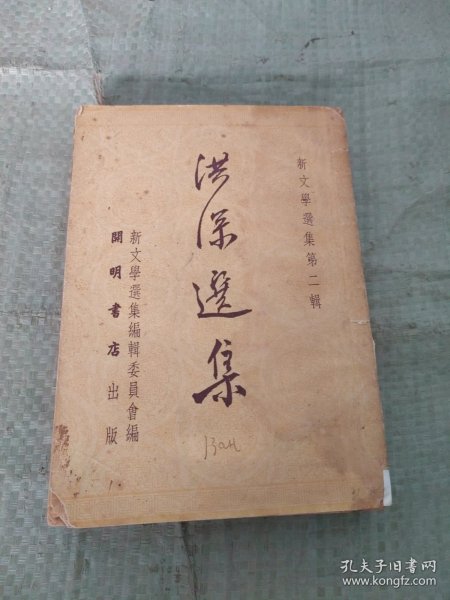 新文學選集第二輯
洪深選集
新文學選集編輯委員會編
開明書店出版
孔夫子旧书网
www.kongfz.com